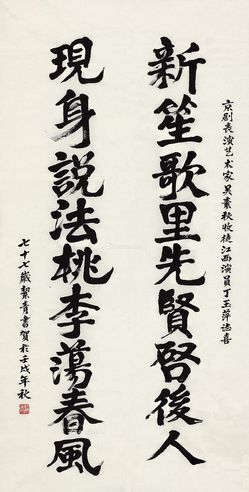 京剧表演艺术家吴素秋收徒江西演员丁玉萍誌喜
新笙歌里先賢啓後人
現身説法桃李蕩春風
七十七歲絜青書賀於壬戌年秋